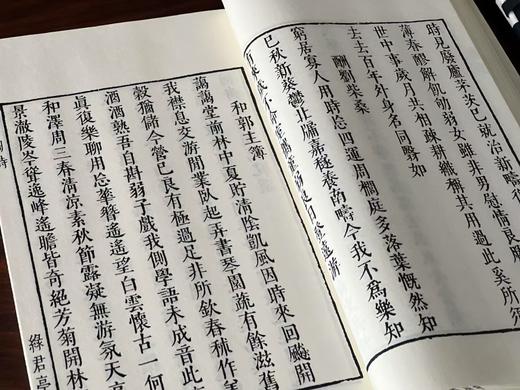 時見廢廬茅茨已就治新疇
薄春醪解飢劬弱女雖非男慰情良勝
世中事歲月共相疎耕織稱其用過此奚所須
去去百年外身名同翳如
酬劉柴桑
窮居寡人用時忘四運周櫚庭多落葉慨然知
已秋新葵鬱北牖嘉穟養南疇今我不為樂知
有來歲不命室攜童弱良日登遠游
和郭主簿
藹藹堂前林中夏貯清陰凱風因時來回飇開
我襟息交游閒業臥起弄書琴園蔬有餘滋舊
穀猶儲今營己良有極過足非所欽舂秫作美
酒酒熟吾自斟弱子戲我側學語未成音此
真復樂聊用忘華簪遙遙望白雲懷古一何
和澤周三春清涼素秋節露凝無游氛天高
景澈陵岑聳逸峰遙瞻皆奇絕芳菊開林
詩
綠君亭